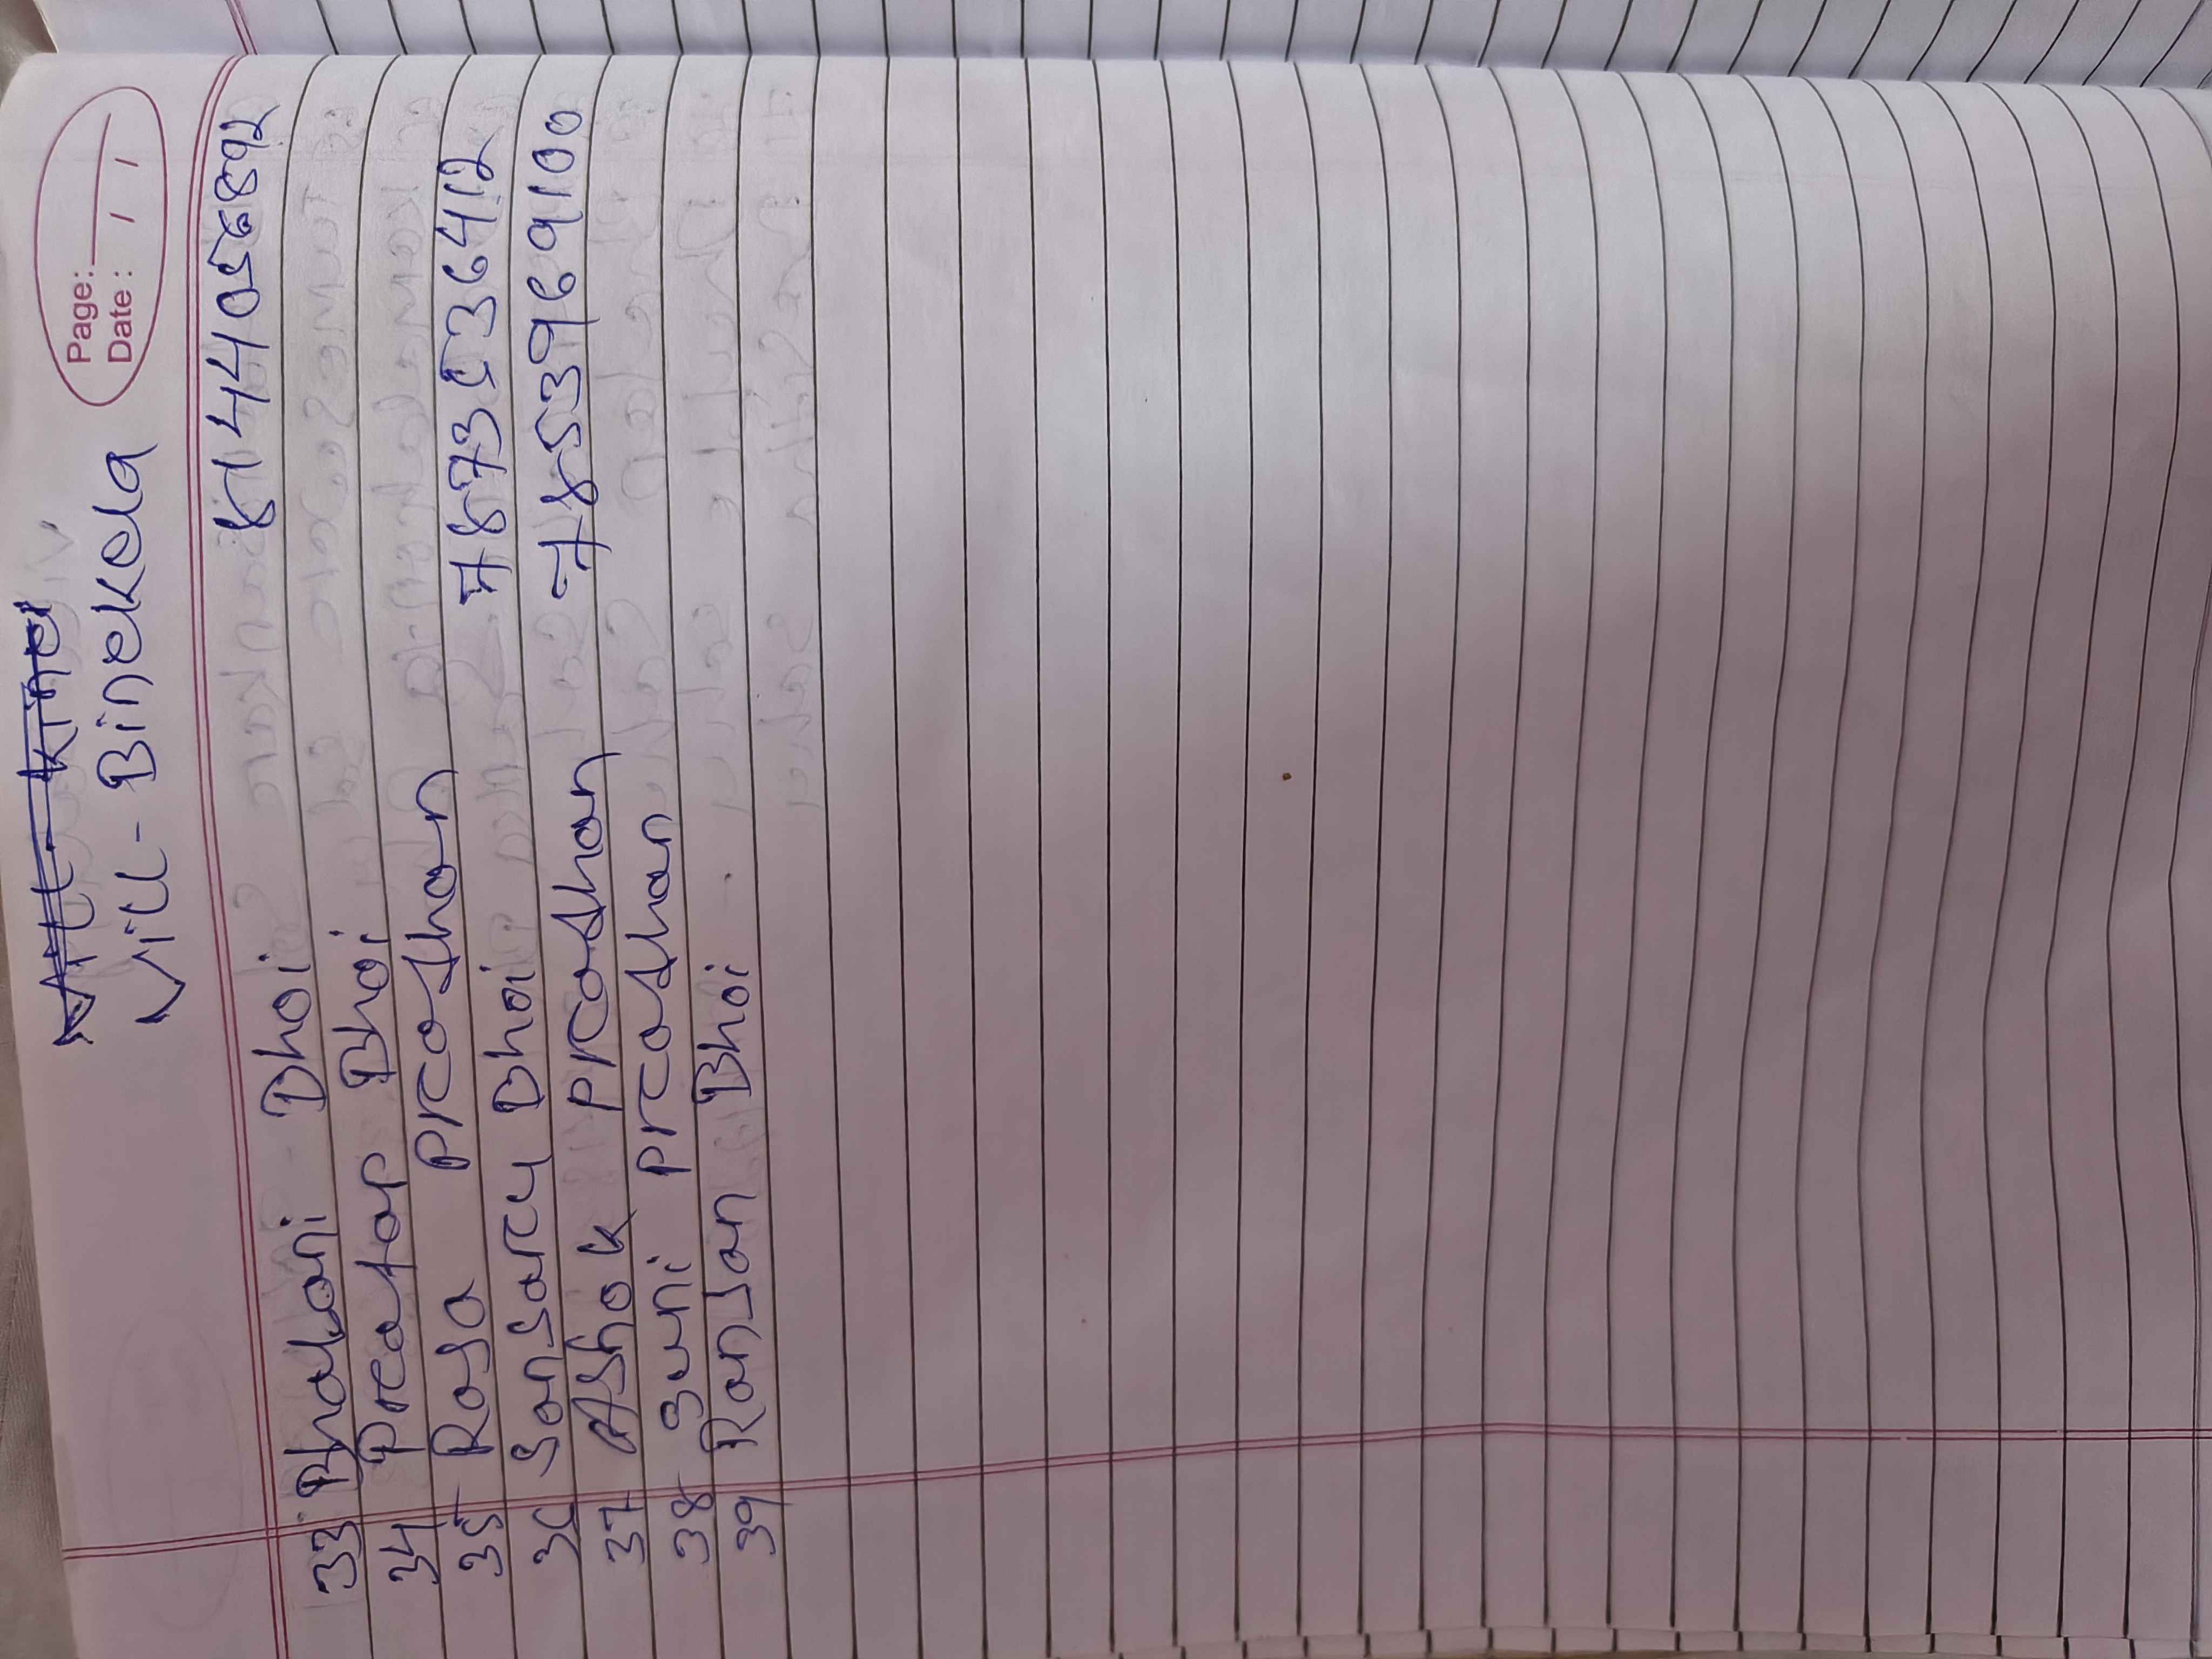 Page:
Date: / /
Vill - Binekela
33 Bhabani Bhoi 8144056892
34 Pratap Bhoi
35 Rasa Pradhan 7873536412
36 Sansaru Bhoi
37 Ashok Pradhan 7853969100
38 Suni Pradhan
39 Ranjan Bhoi